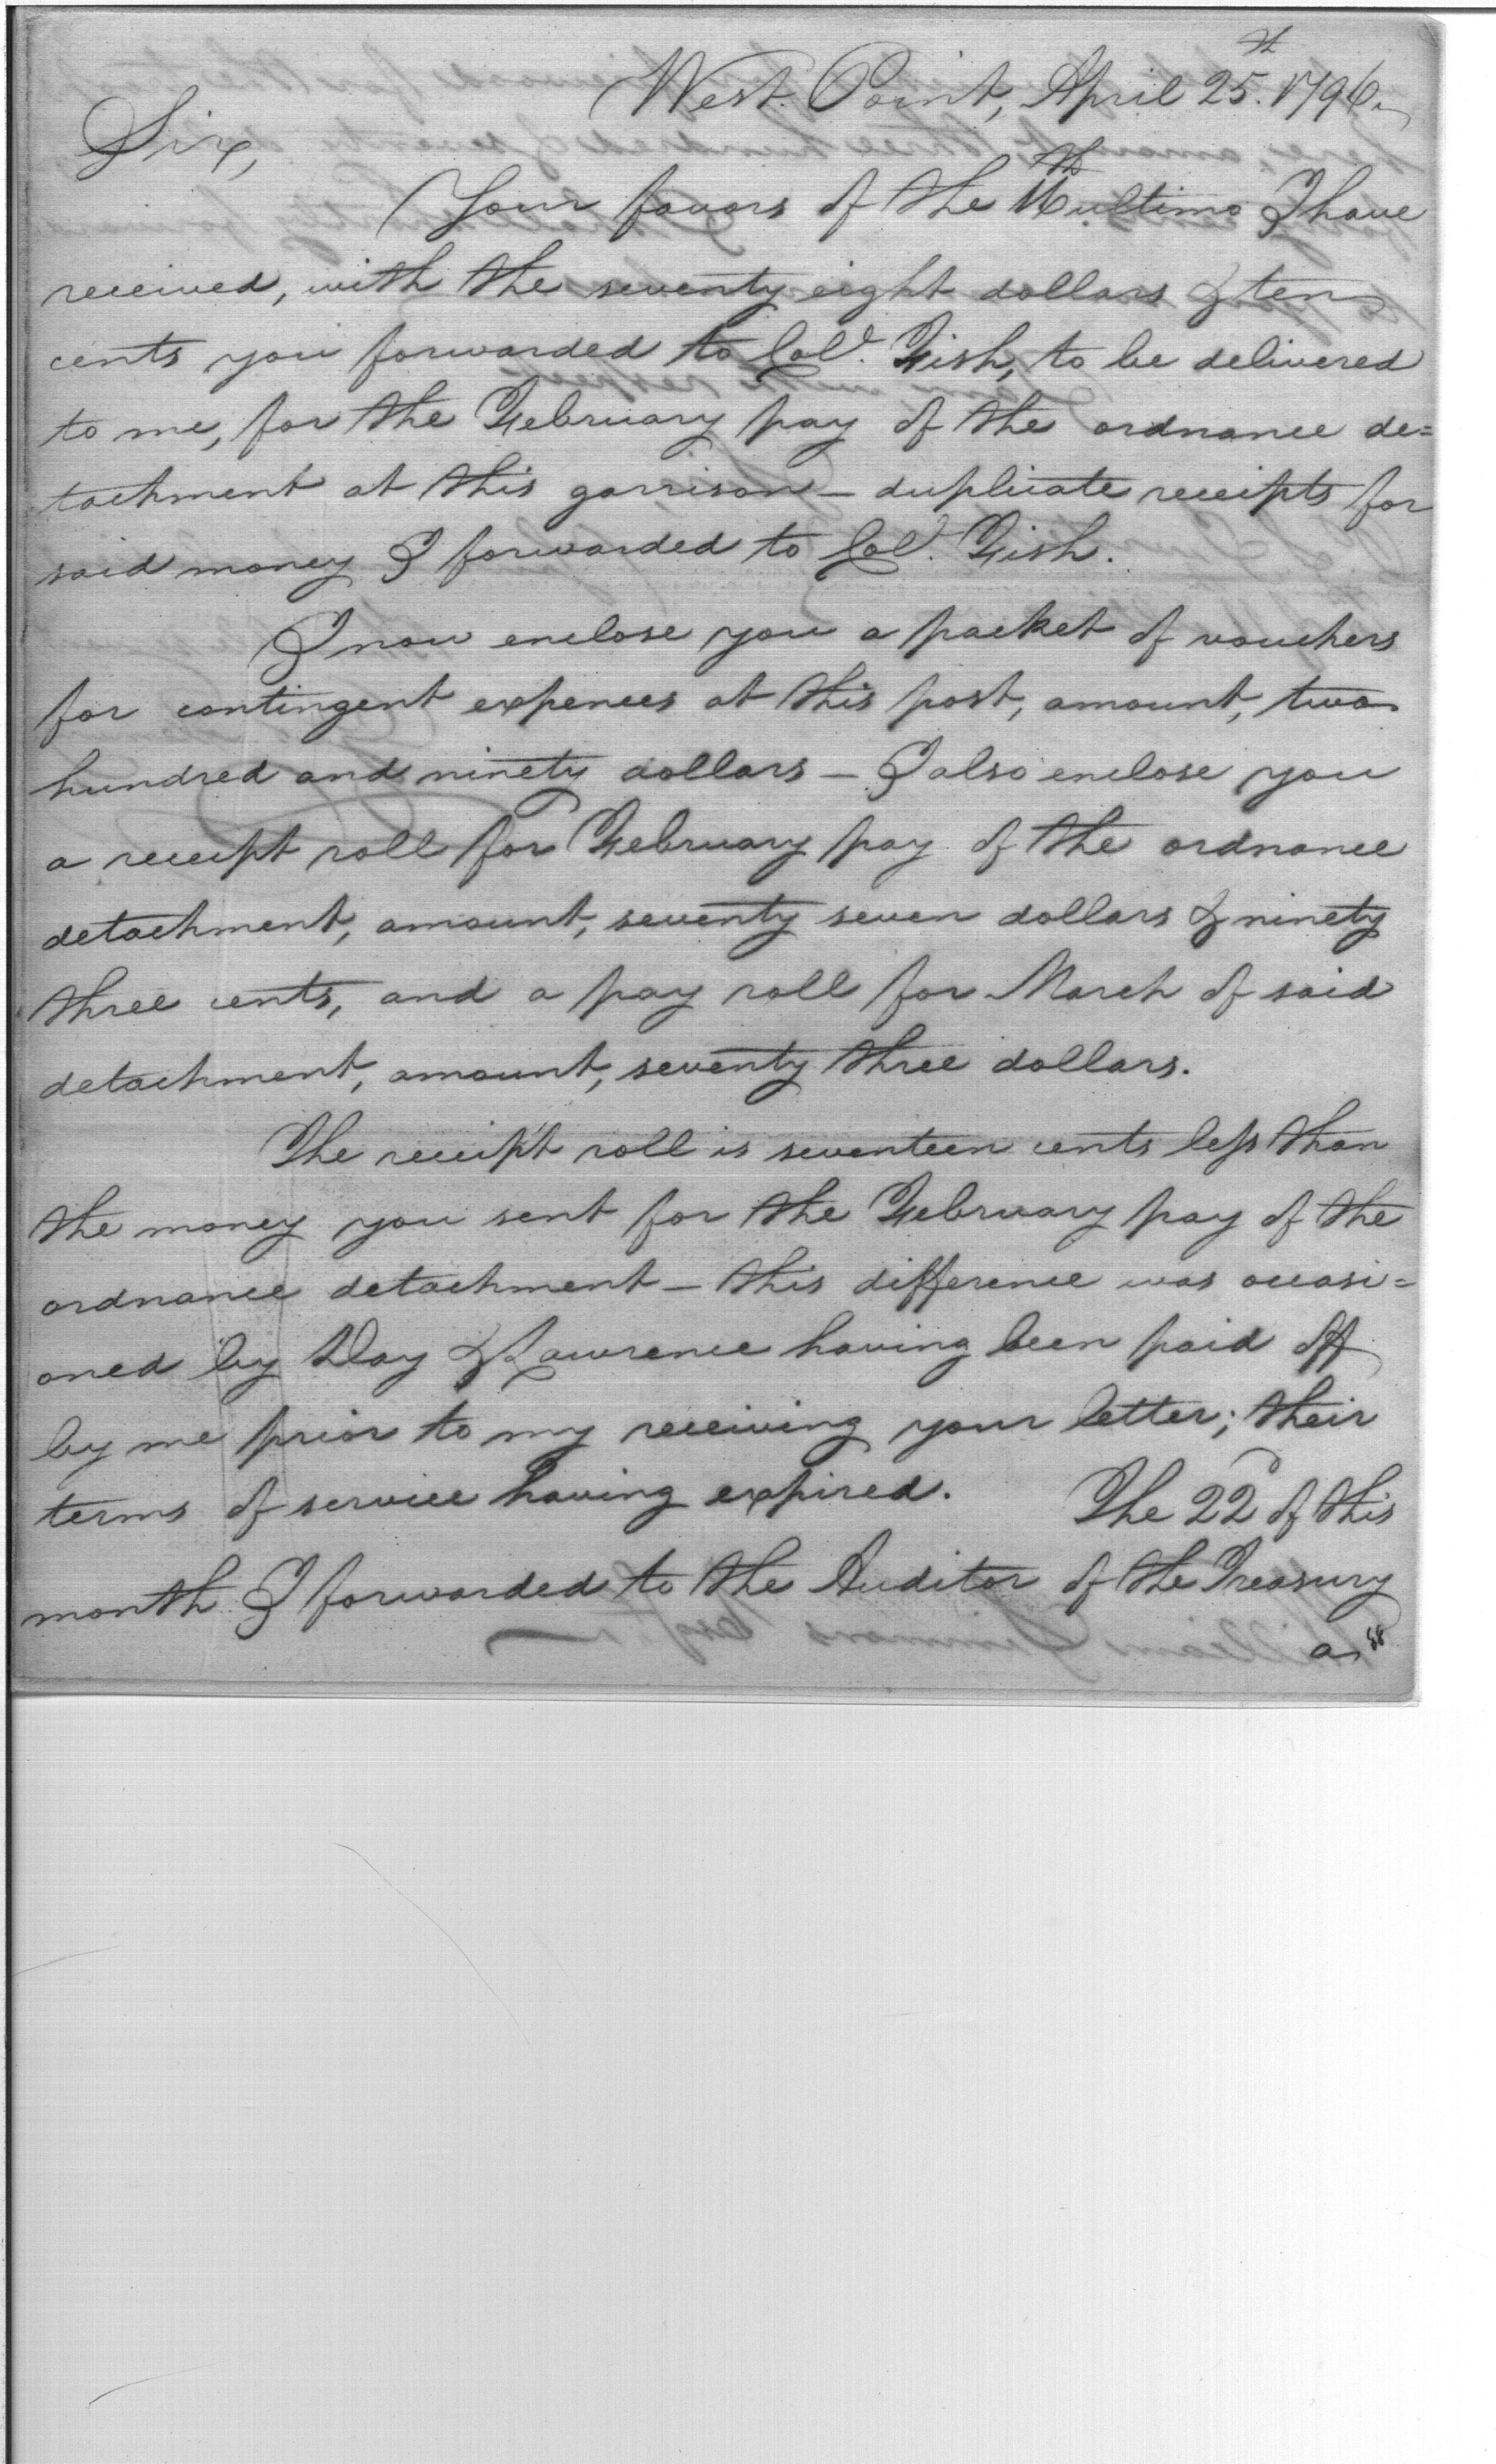 West Point, April 25th. 1796.
Sir,
Your favors of the 16th ultimo I have
received, with the seventy eight dollars & ten
cents you forwarded to Col. Fish, to be delivered
to me, for the February pay of the ordnance de=
tachment at this garrison — duplicate receipts for
said money I forwarded to Col. Fish.
I now enclose you a packet of vouchers
for contingent expences at this post, amount, two
hundred and ninety dollars — I also enclose you
a receipt roll for February pay of the ordnance
detachment, amount, seventy seven dollars & ninety
three cents, and a pay roll for March of said
detachment, amount, seventy three dollars.
The receipt roll is seventeen cents less than
the money you sent for the February pay of the
ordnance detachment — this difference was occasi=
oned by Day & Lawrence having been paid off
by me prior to my receiving your letter; their
terms of service having expired. The 22d of this
month I forwarded to the Auditor of the Treasury
a